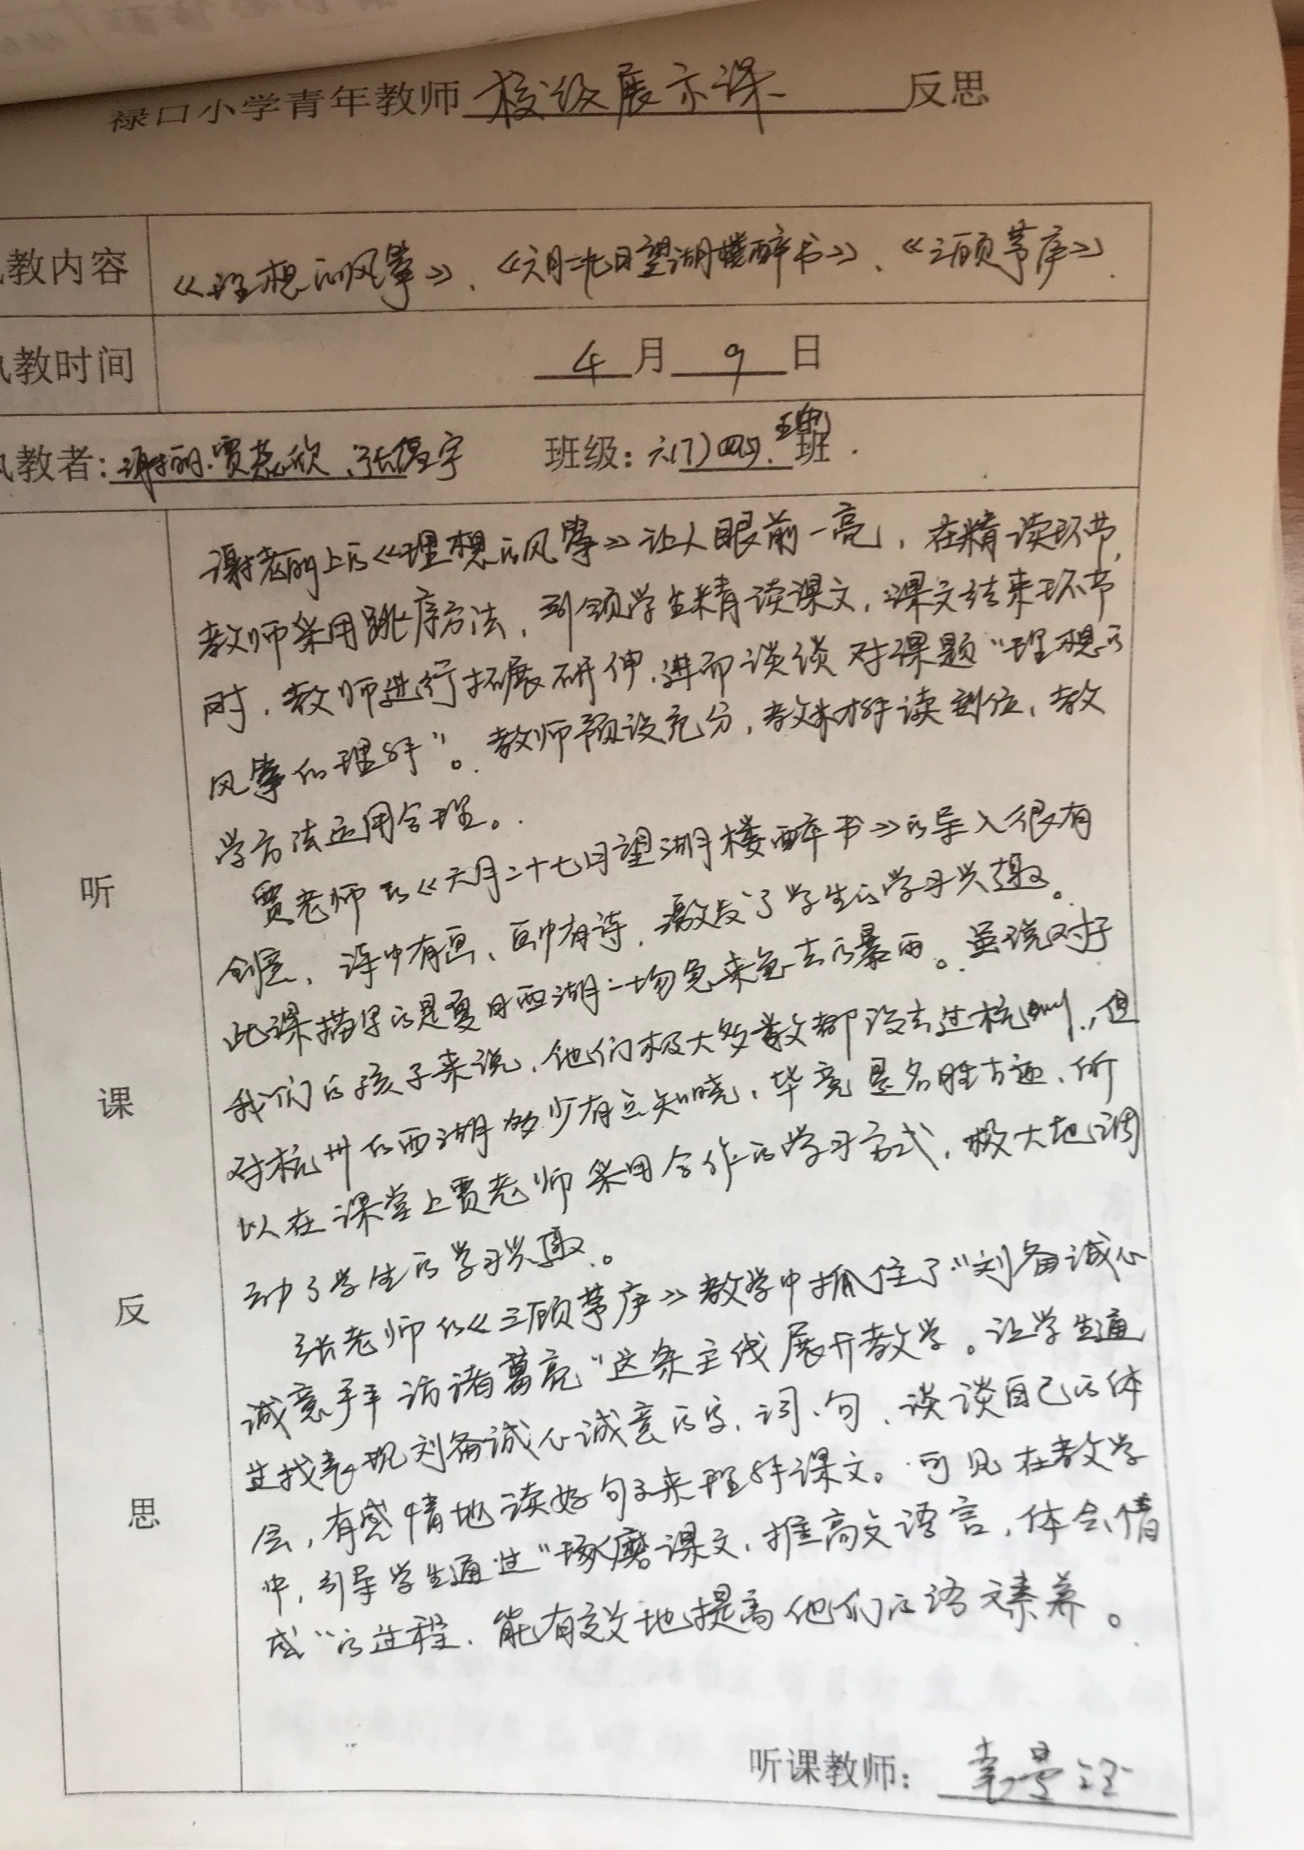 禄口小学青年教师 校级展示课 反思
教内容 《理想的风筝》、《六月二十七日望湖楼醉书》、《三顾茅庐》
教时间 4月9日
教者: 谢丽、贾蕊欣、张 宇 班级: 六(7) 班
谢老师上的《理想的风筝》让人眼前一亮，在精读环节，
教师采用跳序方法，引领学生精读课文，课文结束环节
时，教师进行拓展研伸，进而谈谈对课题“理想的
风筝的理解”。教师预设充分，教材解读到位，教
学方法运用合理。
贾老师的《六月二十七日望湖楼醉书》的导入很有
创意，诗中有画、画中有诗，激发了学生的学习兴趣。
此课描写的是夏日西湖一场急来急去的暴雨。虽说对于
我们的孩子来说，他们极大多数都没去过杭州，但
对杭州的西湖多少有点知晓，毕竟是名胜古迹，所
以在课堂上贾老师采用合作的学习方式，极大地调
动了学生的学习兴趣。
张老师的《三顾茅庐》教学中抓住了“刘备诚心
诚意 访诸葛亮”这条主线展开教学。让学生通
过找表现刘备诚心诚意的字、词、句，谈谈自己的体
会，有感情地读好句子来理解课文。可见在教学
中，引导学生通过“琢磨课文，推高文语言，体会情
感”的过程，能有效地提高他们的语文素养。
听
课
反
思
听课教师: